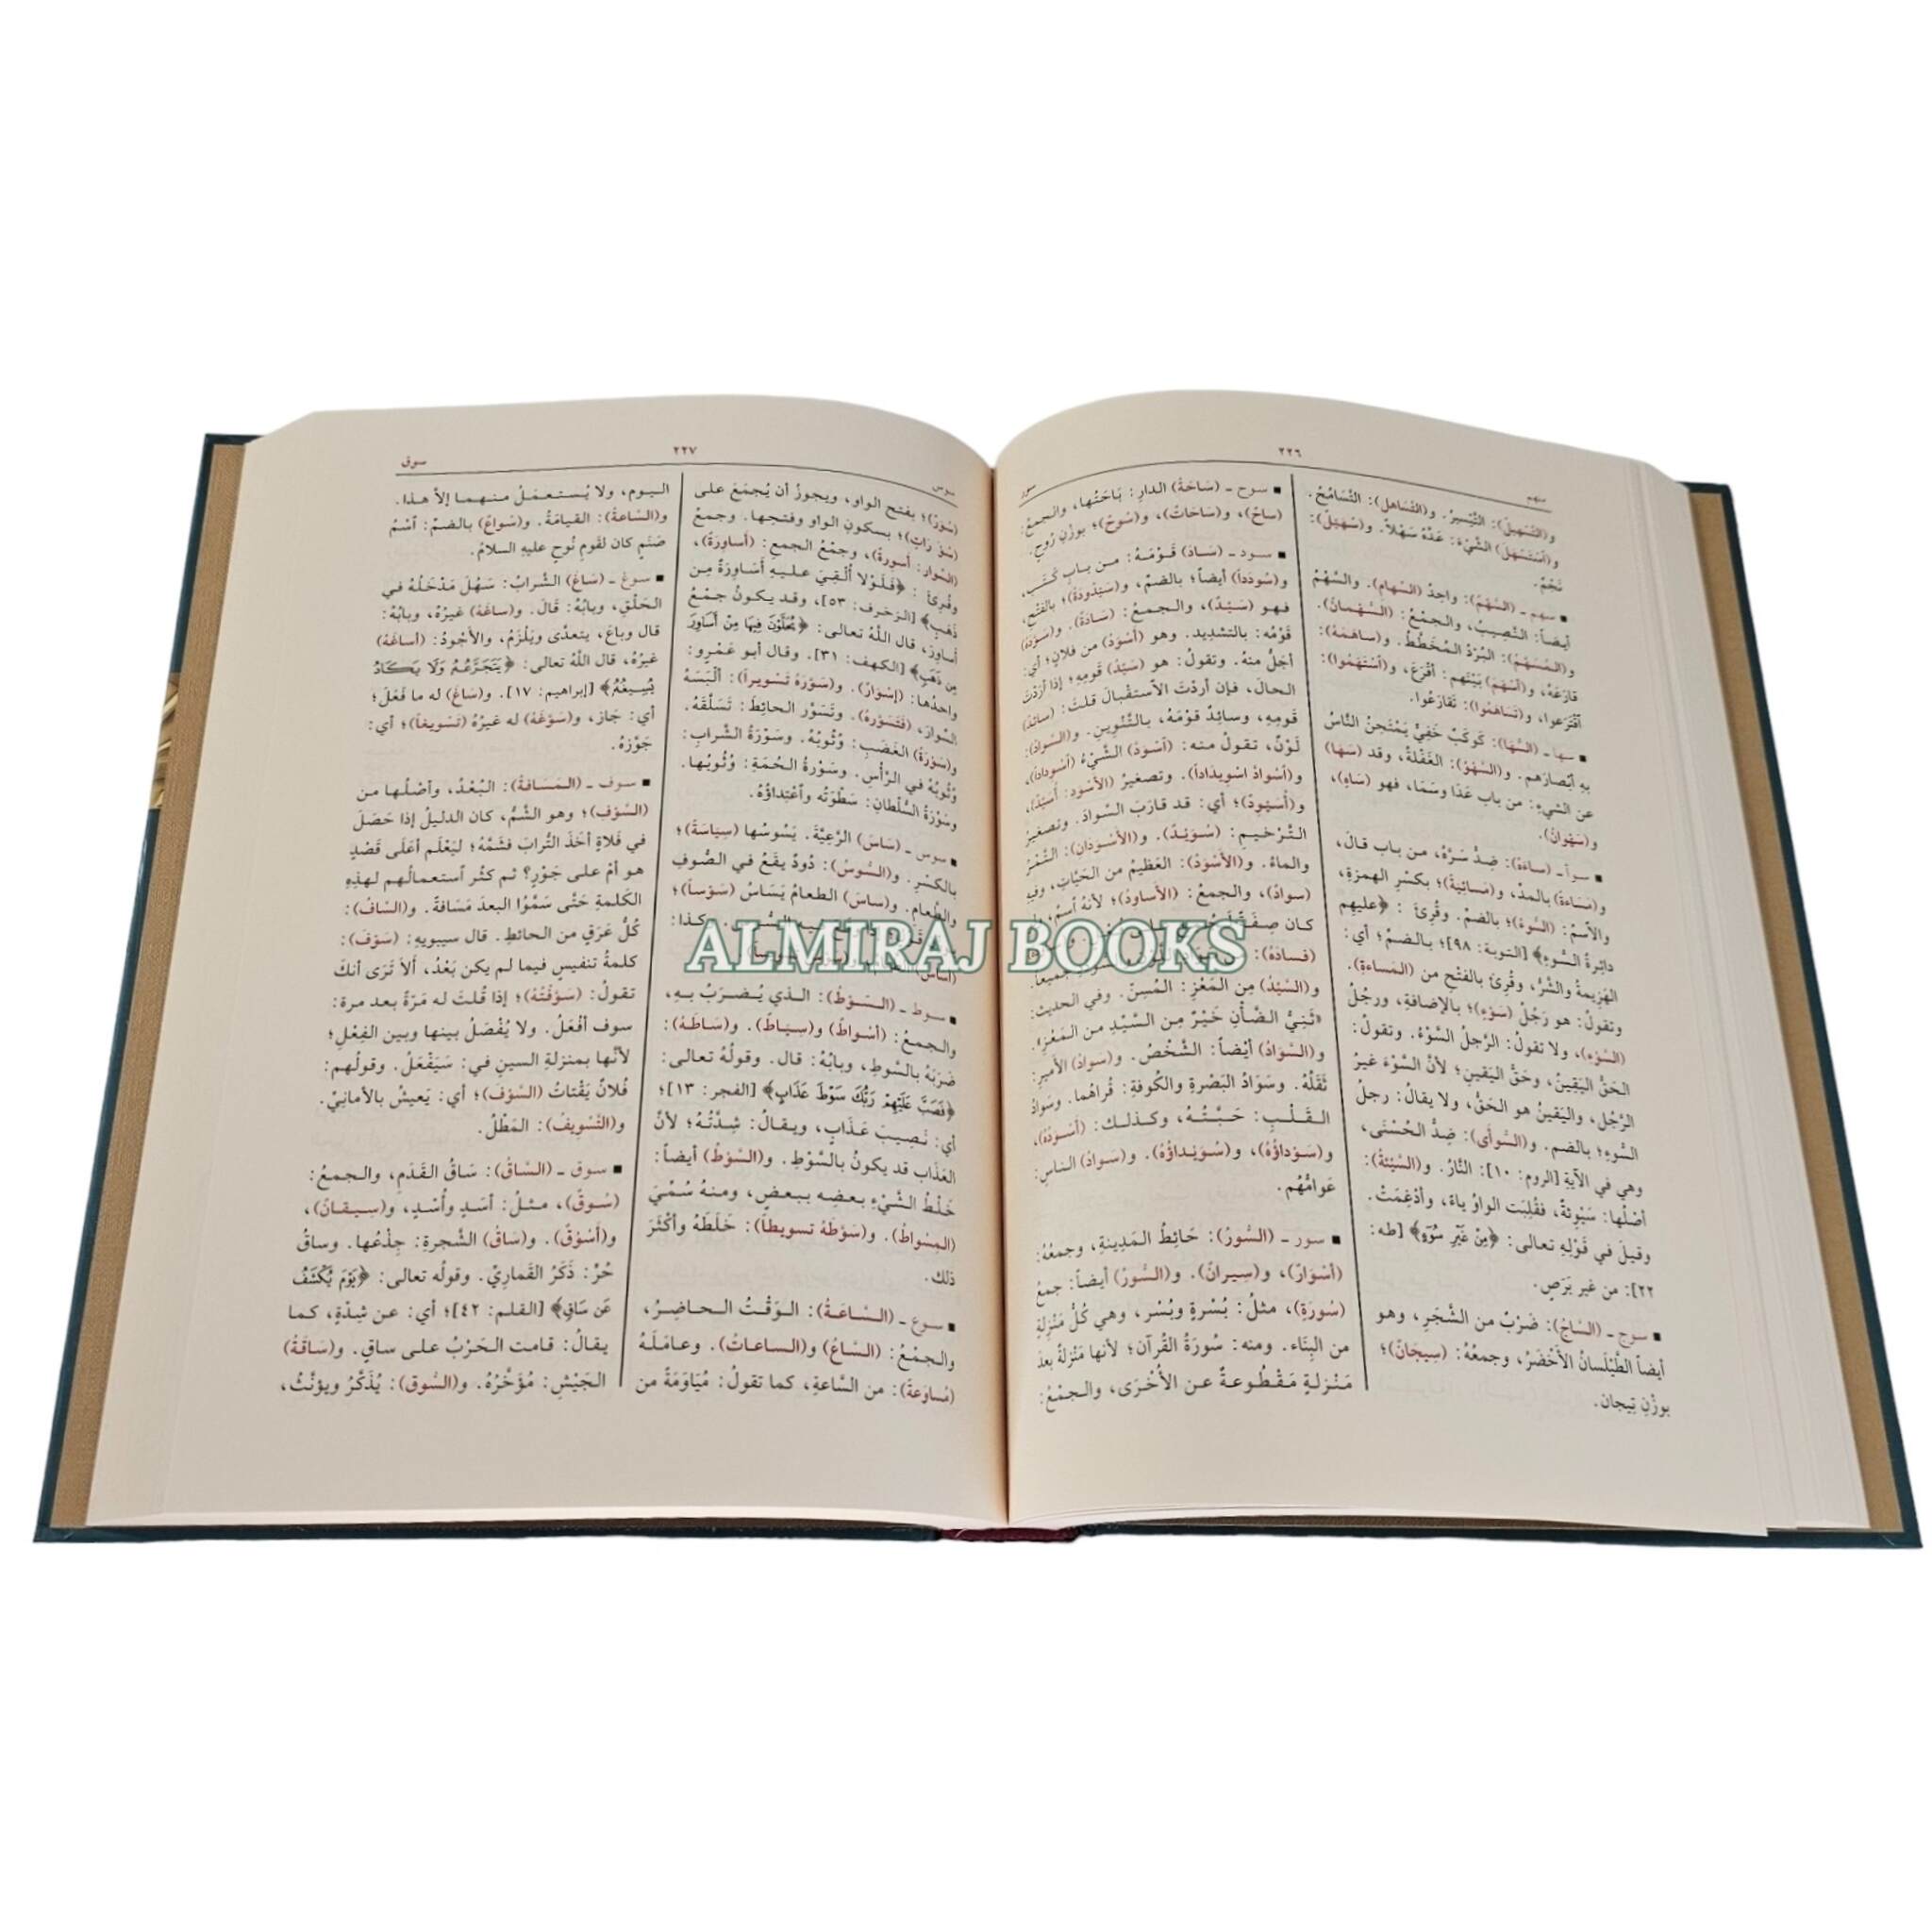 سهم
٢٢٦
سور
و(التَّسْهِيلُ): التَّيْسِيرُ. و(التَّسَاهل): التَّسَامُحُ.
و(أَسْتَسْهَلَ) الشَّيْءَ: عَدَّهُ سَهْلاً. و(سُهَيْلٌ):
نَجْمٌ.
■ سهم ـ (السَّهْمُ): واحِدُ (السِّهامِ). والسَّهْمُ
أيضاً: النَّصِيبُ، والجَمْعُ: (السُّهْمانُ).
و(المُسَهَّمُ): البُرْدُ المُخَطَّطُ. و(ساهَمَهُ):
قارَعَهُ، و(أَسْهَمَ) بَيْنَهم: أَقْرَعَ، و(أَسْتَهَمُوا):
أَقْتَرَعوا، و(تَسَاهَمُوا): تَقارَعُوا.
■ سها ـ (السُّهَا): كَوكَبٌ خَفِيٌّ يَمْتَحِنُ النَّاسُ
بِهِ أَبْصارَهم. و(السَّهْوُ): الغَفْلَةُ، وقد (سَهَا)
عن الشيءِ: من باب عَدَا وسَمَا، فهو (سَاهٍ)،
و(سَهْوانُ).
■ سوأ ـ (ساءَهُ): ضِدُّ سَرَّهُ، من باب قالَ،
و(مَسَاءَةً) بالمدِّ، و(مَسَائِيَةً)؛ بكسْرِ الهمزةِ،
والاسْمُ: (السُّوءُ)؛ بالضمِّ. وقُرِئَ : ﴿عليهِم
دائِرةُ السُّوءِ﴾ [التوبة: ٩٨]؛ بالضمِّ؛ أي:
الهَزِيمةُ والشَّرُّ، وقُرِئَ بالفتْحِ من (المَساءةِ).
وتقولُ: هو رَجُلُ (سَوْءٍ)؛ بالإضافةِ، ورجُلُ
(السَّوْءِ)، ولا تقولُ: الرَّجلُ السَّوْءُ. وتقولُ:
الحَقُّ اليَقِينُ، وحَقُّ اليَقينِ؛ لأنَّ السَّوْءَ غيرُ
الرَّجُلِ، واليَقينُ هو الحَقُّ، ولا يقالُ: رجلُ
السُّوءِ؛ بالضم. و(السُّوأَى): ضِدُّ الحُسْنَى،
وهي في الآيةِ [الروم: ١٠]: النَّارُ. و(السَّيِّئةُ):
أصْلُها: سَيْوِئةٌ، فقُلِبَت الواوُ ياءً، وأُدْغِمَتْ.
وقيلَ في قَوْلِهِ تعالى: ﴿مِنْ غَيْرِ سُوٓءٍ﴾ [طه:
٢٢]: من غير بَرَصٍ.
■ سوج ـ (السَّاجُ): ضَرْبٌ من الشَّجَرِ، وهو
أيضاً الطَّيْلَسانُ الأَخْضَرُ، وجمعُهُ: (سِيجَانٌ)؛
بوزْنِ تِيجان.
■ سوح ـ (سَاحَةُ) الدارِ: بَاحَتُها، والجمعُ:
(ساحٌ)، و(سَاحَاتٌ)، و(سُوحٌ)؛ بوزْنِ رُوحٍ.
■ سود ـ (سَادَ) قَوْمَهُ: من بابِ كَتَب،
و(سُودَداً) أيضاً؛ بالضمِّ، و(سَيْدُودةً)؛ بالفتْحِ،
فهو (سَيِّدٌ)، والجمعُ: (سَادَةٌ). و(سَوَّدَهُ)
قَوْمُه: بالتشديد. وهو (أَسْوَدُ) من فلانٍ؛ أي:
أجَلُّ منهُ. وتقولُ: هو (سَيِّدُ) قَومِهِ؛ إذا أردْتَ
الحالَ، فإن أردْتَ الاسْتقْبالَ قلتَ: (سائدُ)
قَومِهِ، وسائِدٌ قَوْمَهُ، بالتَّنْوِينِ. و(السَّوادُ):
لَوْنٌ، تقولُ منه: (أَسْوَدَّ) الشَّيْءُ (أَسْوِداداً)،
و(أَسْوَادَّ اسْوِيدَاداً). وتصغيرُ (الأَسْوَد: أُسَيِّدٌ)،
و(أُسَيْوِدٌ)؛ أي: قد قارَبَ السَّوادَ. وتصغيرُ
التَّرْخيمِ: (سُوَيْدٌ). و(الأَسْوَدانِ): التَّمْرُ
والماءُ. و(الأَسْوَدُ): العَظيمُ من الحَيَّاتِ، وفيهِ
(سوادٌ)، والجمعُ: (الأَساوِدُ)؛ لأنهُ اسْمٌ،
كان صِفَةً
(فسادَهُ):
و(السَّيِّدُ) مِنَ المَعْزِ: المُسِنُّ. وفي الحديث:
«ثَنِيُّ الضَّأْنِ خَيْرٌ مِن السَّيِّدِ من المَعْزِ».
و(السَّوَادُ) أيْضاً: الشَّخْصُ. و(سوادُ) الأَميرِ:
ثَقَلُهُ. وسَوَادُ البَصْرةِ والكُوفةِ: قُراهُما. وسَوَادُ
القَلْبِ: حَبَّتُهُ، وكذلك: (أَسْوَدُهُ)،
و(سَوْداؤُهُ)، و(سُوَيْداؤُهُ). و(سَوادُ) الناسِ:
عَوامُّهُم.
■ سور ـ (السُّورُ): حَائِطُ المَدِينةِ، وجمعُهُ:
(أَسْوَارٌ)، و(سِيرانٌ). و(السُّورُ) أيضاً: جمعُ
(سُورَةٍ)، مثلُ: بُسْرةٍ وبُسْر، وهي كُلُّ مَنْزِلةٍ
من البِنَاء. ومنه: سُورَةُ القُرآن؛ لأنها مَنْزلةٌ بعدَ
مَنْزلةٍ مَقْطُوعةٌ عن الأُخْرَى، والجمْعُ:
سوس
٢٢٧
سوق
(سُوَرٌ)؛ بفتح الواوِ، ويجوزُ أن يُجمَعَ على
(سُوْرَاتٍ)؛ بسكونِ الواوِ وفتحِها. وجمعُ
(السِّوارِ: أَسورةٌ)، وجمْعُ الجمعِ: (أَساوِرَةٌ)،
وقُرِئَ : ﴿فَلَوْلا أُلْقِيَ عليهِ أَسَاوِرَةٌ مِن
ذَهَبٍ﴾ [الزخرف: ٥٣]، وقد يكونُ جمْعُ
أساوِرَ، قال اللهُ تعالى: ﴿يُحَلَّوْنَ فِيهَا مِنْ أَسَاوِرَ
مِن ذَهَبٍ﴾ [الكهف: ٣١]. وقال أبو عَمْرٍو:
واحدُها: (إِسْوَارٌ). و(سَوَّرَهُ تَسْويراً): أَلْبَسَهُ
السِّوارَ، (فَتَسَوَّرَهُ). وتَسَوَّر الحائِطَ: تَسَلَّقَهُ.
و(سَوْرَةُ) الغَضَبِ: وُثُوبُهُ. وسَوْرَةُ الشَّرابِ:
وُثُوبُهُ في الرَّأْسِ. وسَوْرةُ الحُمَةِ: وُثُوبُها.
وسَوْرةُ السُّلْطانِ: سَطْوَتُه وٱعْتِداؤُهُ.
■ سوس ـ (سَاسَ) الرَّعِيَّةَ. يَسُوسُها (سِيَاسَةً)؛
بالكسْرِ. و(السُّوسُ): دُودٌ يقَعُ في الصُّوفِ
والطَّعام. و(ساسَ) الطعامُ يَسَاسُ (سَوْساً)؛
كذا:
■ سوط ـ (السَّوْطُ): الذي يُضرَبُ بهِ،
والجمعُ: (أَسْواطٌ) و(سِيَاطٌ). و(سَاطَهُ):
ضَرَبَهُ بالسَّوطِ، وبابُهُ: قال. وقولُهُ تعالى:
﴿فَصَبَّ عَلَيْهِمْ رَبُّكَ سَوْطَ عَذَابٍ﴾ [الفجر: ١٣]؛
أي: نَصِيبَ عَذَابٍ، ويقالُ: شِدَّتُهُ؛ لأنَّ
العَذَابَ قد يكونُ بالسَّوْطِ. و(السَّوْطُ) أيضاً:
خَلْطُ الشَّيْءِ بعضِه ببعضٍ، ومنهُ سُمِّيَ
(المِسْواطُ). و(سَوَّطَهُ تسويطاً): خَلَطَهُ وأكْثَرَ
ذلك.
■ سوع ـ (السَّاعَةُ): الوَقْتُ الحاضِرُ،
والجمْعُ: (السَّاعُ) و(الساعاتُ). وعامَلَهُ
(مُساوَعَةً): من السَّاعةِ، كما تقولُ: مُيَاوَمَةً من
اليوم، ولا يُستعمَلُ منهما إلاَّ هذا.
و(السَّاعةُ): القِيامَةُ. و(سُواعٌ) بالضمِّ: اسْمُ
صَنَمٍ كان لقَومِ نُوحٍ عليهِ السلامُ.
■ سوغ ـ (سَاغَ) الشَّرابُ: سَهُلَ مَدْخَلُهُ في
الحَلْقِ، وبابُهُ: قالَ. و(ساغَهُ) غيرُهُ، وبابُهُ:
قال وباعَ، يتعدَّى ويَلْزَمُ، والأَجْودُ: (أساغَهُ)
غيرُهُ، قال اللهُ تعالى: ﴿يَتَجَرَّعُهُ وَلَا يَكَادُ
يُسِيغُهُ﴾ [إبراهيم: ١٧]. و(سَاغَ) له ما فَعَلَ؛
أي: جَازَ، و(سَوَّغَهُ) له غيرُهُ (تَسْويغاً)؛ أي:
جَوَّزَهُ.
■ سوف ـ (المَسَافةُ): البُعْدُ، وأصْلُها من
(السَّوْفِ)؛ وهو الشَّمُّ، كان الدليلُ إذا حَصَلَ
في فَلاةٍ أخَذَ التُّرابَ فشَمَّهُ؛ ليَعْلَم أعَلَى قَصْدٍ
هو أمْ على جَوْرٍ؟ ثم كثُر ٱستعمالُهم لهذِهِ
الكَلمةِ حَتَّى سَمَّوُا البعدَ مَسَافةً. و(السَّافُ):
كُلُّ عَرَقٍ من الحائطِ. قال سيبويهِ: (سَوْفَ):
كلمةُ تنفيسٍ فيما لم يكن بَعْدُ، أَلاَ تَرَى أنكَ
تقولُ: (سَوَّفْتُهُ)؛ إذا قُلتَ له مَرّةً بعد مرة:
سوف أفْعَلُ. ولا يُفْصَلُ بينها وبين الفِعْلِ؛
لأنَّها بمنزلةِ السينِ في: سَيَفْعَلُ. وقولُهم:
فُلانٌ يَقْتاتُ (السَّوْفَ)؛ أي: يَعيشُ بالأمانِيِّ.
و(التَّسْوِيفُ): المَطْلُ.
■ سوق ـ (السَّاقُ): سَاقُ القَدَمِ، والجمعُ:
(سُوقٌ)، مثلُ: أسَدٍ وأُسْدٍ، و(سِيقانٌ)،
و(أَسْوُقٌ). و(سَاقُ) الشَّجرةِ: جِذْعُها. وساقُ
حُرٍّ: ذَكَرُ القَمارِيِّ. وقولُه تعالى: ﴿يَوْمَ يُكْشَفُ
عَن سَاقٍ﴾ [القلم: ٤٢]؛ أي: عن شِدَّةٍ، كما
يقالُ: قامت الحَرْبُ على ساقٍ. و(سَاقَةُ)
الجَيْشِ: مُؤَخَّرُهُ. و(السُّوق): يُذَكَّرُ ويؤنَّثُ،
ALMIRAJ BOOKS